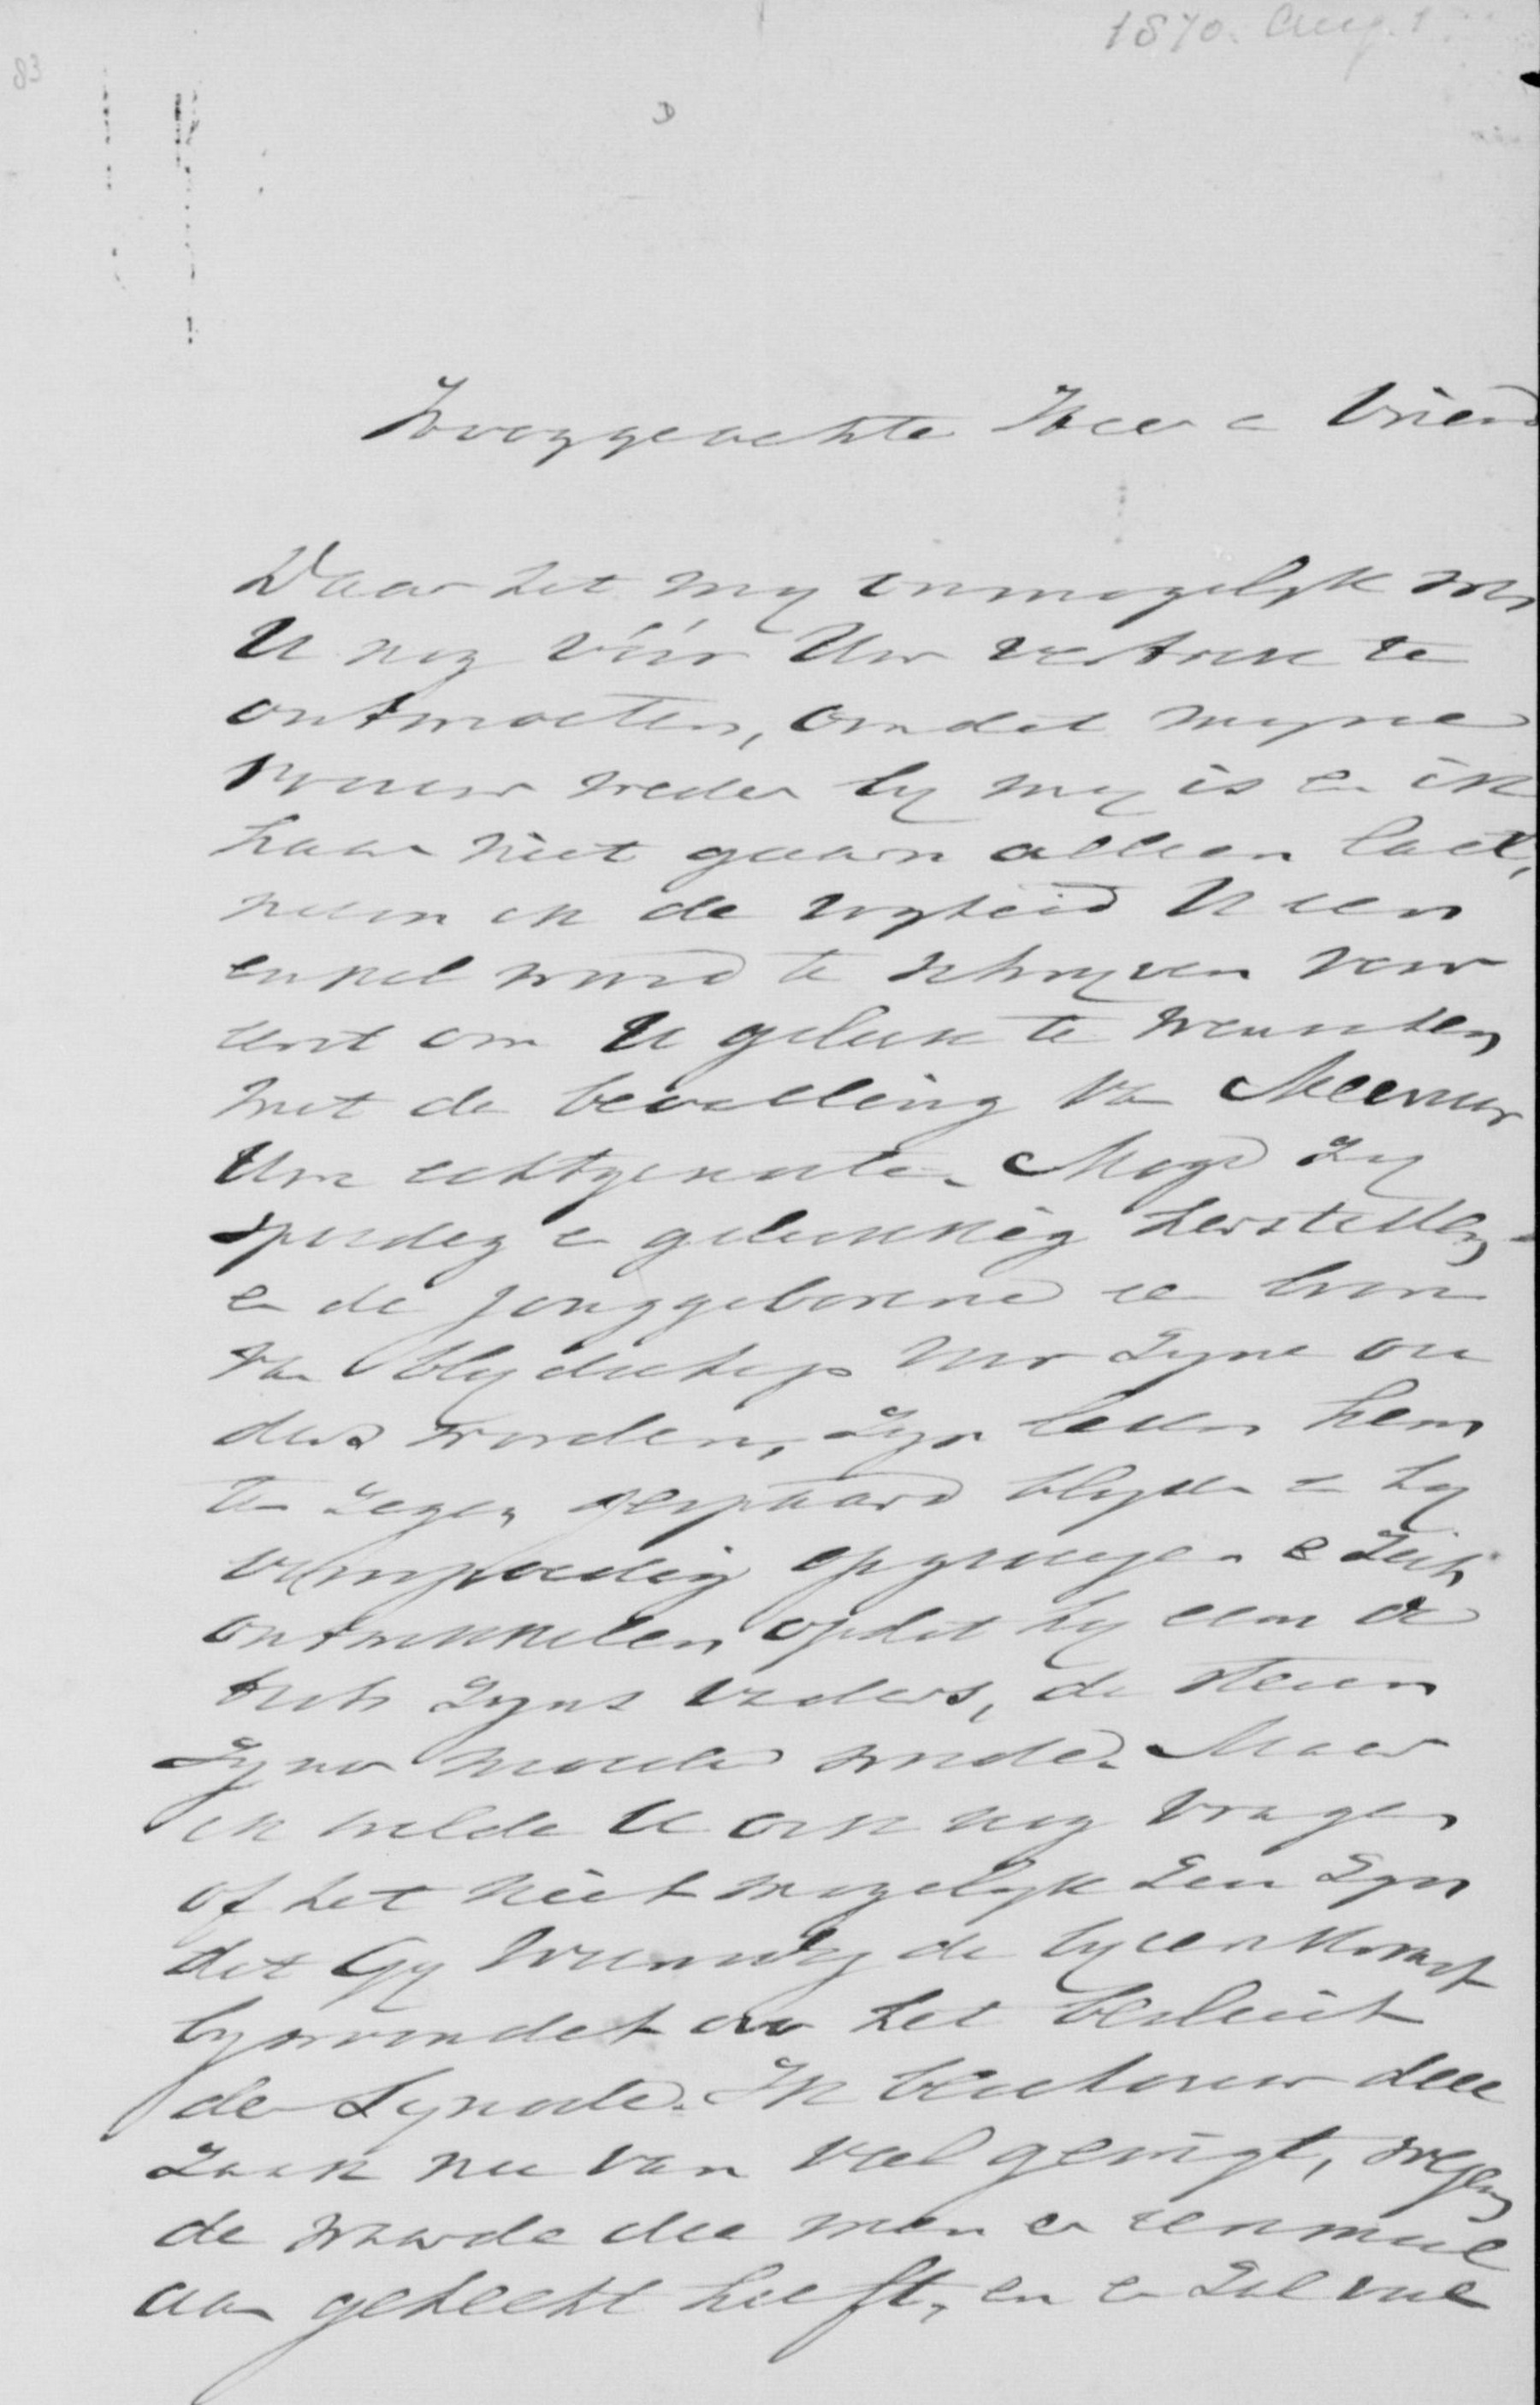 1870. Aug. 1
83
Hooggeachte Heer en Vriend
Daar het my onmogelyk was
U nog vóór Uw vertrek te
ontmoeten, omdat myne
vrouw weder by my is en ik
haar niet gaarn alleen laat,
neem ik de vryheid U een
enkel woord te schryven voor
eerst om U geluk te wenschen
met de bevalling van Mevrouw
Uwe echtgenoote. Moge zy
spoedig en gelukkig herstellen
en de jonggeborene een bron
van blydschap voor zyne ou
ders worden, zyn leven hem
ten zegen gespaard blyven en hy
voorspoedig opgroeyen en zich
ontwikkelen opdat hy eens de
trots zyns vaders, de steun
zyner moeder worde. Maar
ik wilde U ook nog vragen
of het niet mogelyk zou zyn
dat Gy Woensdag de byeenkomst
bywoondet over het besluit
der Synode. Ik beschouw deze
zaak nu van veel gewigt, wegens
de waarde die men er eenmaal
aan gehecht heeft, en er zal veel